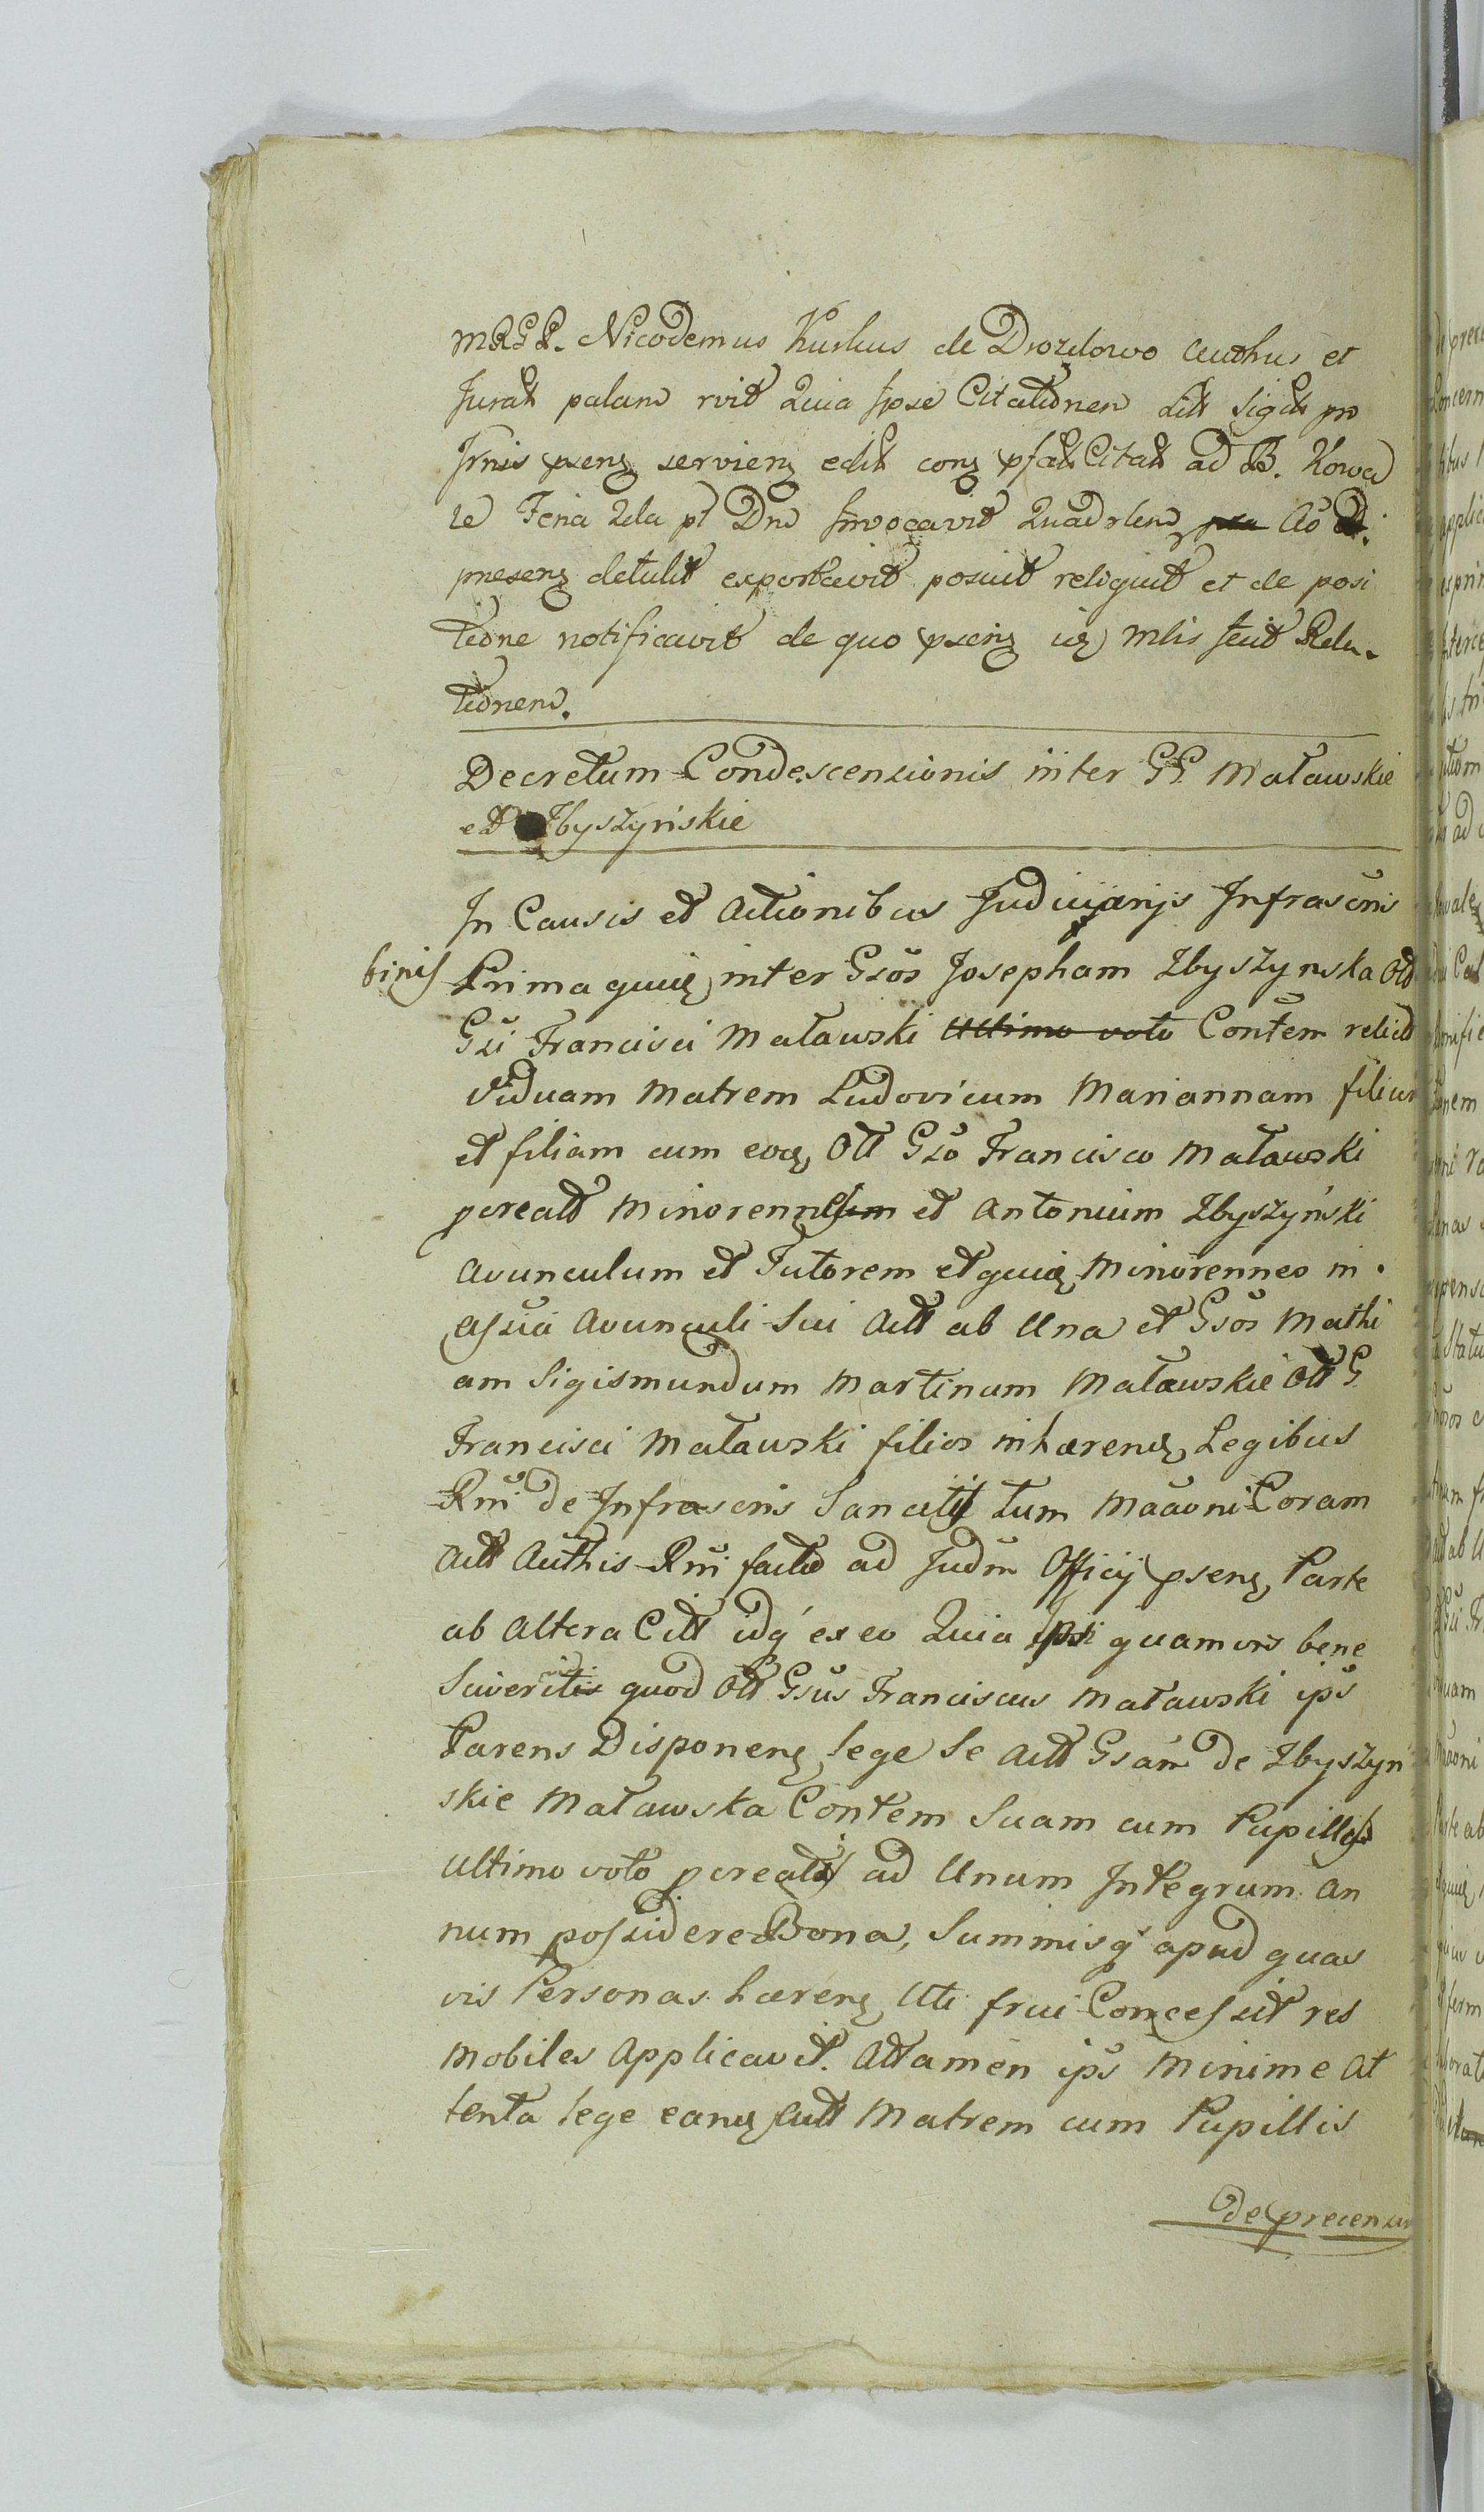 MRGR. Nicodemus Kurkus de Drozdowo Authus et
Juratt palam rvit Quia Ipse Citationem Litt Sigill pro
Irnis psenz servienz edit conz psatt Citatt ad B. Kowa
le Feria 2da pt Dnd Invocavit Quadrlem Ao D.
presenz detulit exportavit posuit reliquit et de posi
tione notificavit de quo psenz uz Mlis fecit Rela-
tionem.
Decretum Condescensionis inter GG. Maławskie
et Zbyszyńskie
In Causis et Actionibus Judiciarijs Infrascris
binis Prima quiz inter Gsos Josepham Zbyszynska Olt
Gsi Francisci Maławski Ultimo voto Contem relict
Viduam Matrem Ludovicum Mariannam filium
et filiam cum eoz Olt Gso Francisco Maławski
pcreatt Minorennes et Antonium Zbyszyński
Avunculum et Tutorem et quiz Minorennes in
assua Avunculi Sui Att ab Una et Gsos Mathi
am Sigismundum Martinum Maławskie Olt G
Francisci Maławski filios inhærenz Legibus
Rni de Infrascris Sancitis tum Maaoni Coram
Att Authis Rni facto ad Judm Officij psenz Parte
ab Altera Citt idq ex eo Quia Ipsi quamvis bene
Sciverint quod Olt Gsus Franciscus Maławski ips
Parens Disponenz lege Se Att Gsam de Zbyszyn
skie Maławska Contem Suam cum Pupillis
Ultimo voto pcreatis ad Unum Integrum An
num possidere Bona, Summisq apud quas
vis Personas hærenz Uti frui Concessit res
Mobiles Applicavit. Attamen ips Minime At
tenta lege eanz Att Matrem cum Pupillis